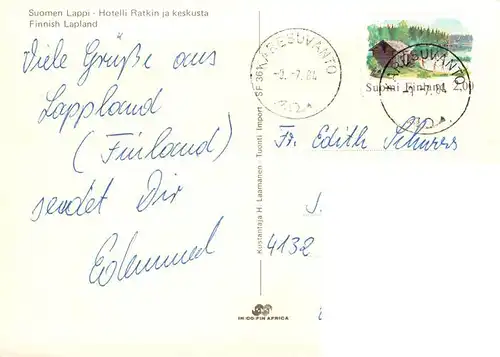 Suomen Lappi - Hotelli Ratkin ja keskusta
Finnish Lapland
Viele Grüße aus
Lappland
(Finland)
sendet Dir
Kustantaja H. Laamanen - Tuonti Import - SF 36
KARESUVANTO
-2.-7.84
KARESUVANTO
Suomi Finland 2,00
Fr. Edith
J.
4132
IKIDO/PIN AFRICA